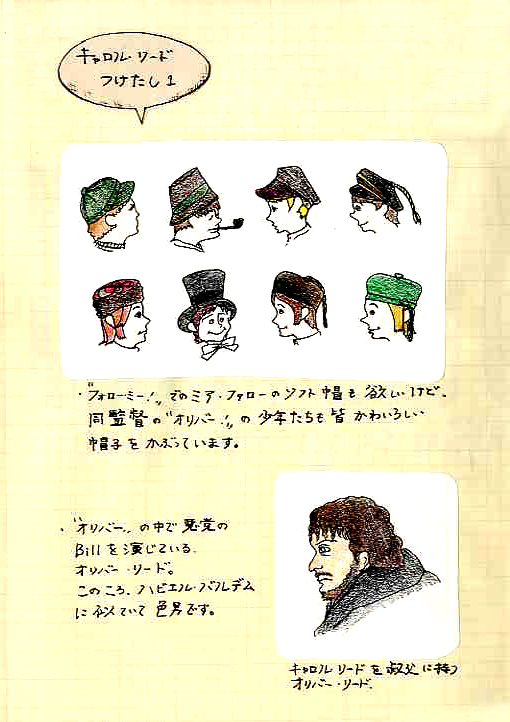 キャロル・リード
つけたし1
・"フォローミー!"でのミア・ファローのソフト帽も欲しいけど、
同監督の"オリバー!"の少年たちも皆かわいらしい
帽子をかぶっています。
・"オリバー!"の中で悪党の
Billを演じている、
オリバー・リード。
このころ、ハビエル・バルデム
に似ていて色男です。
キャロル・リードを叔父に持つ
オリバー・リード。